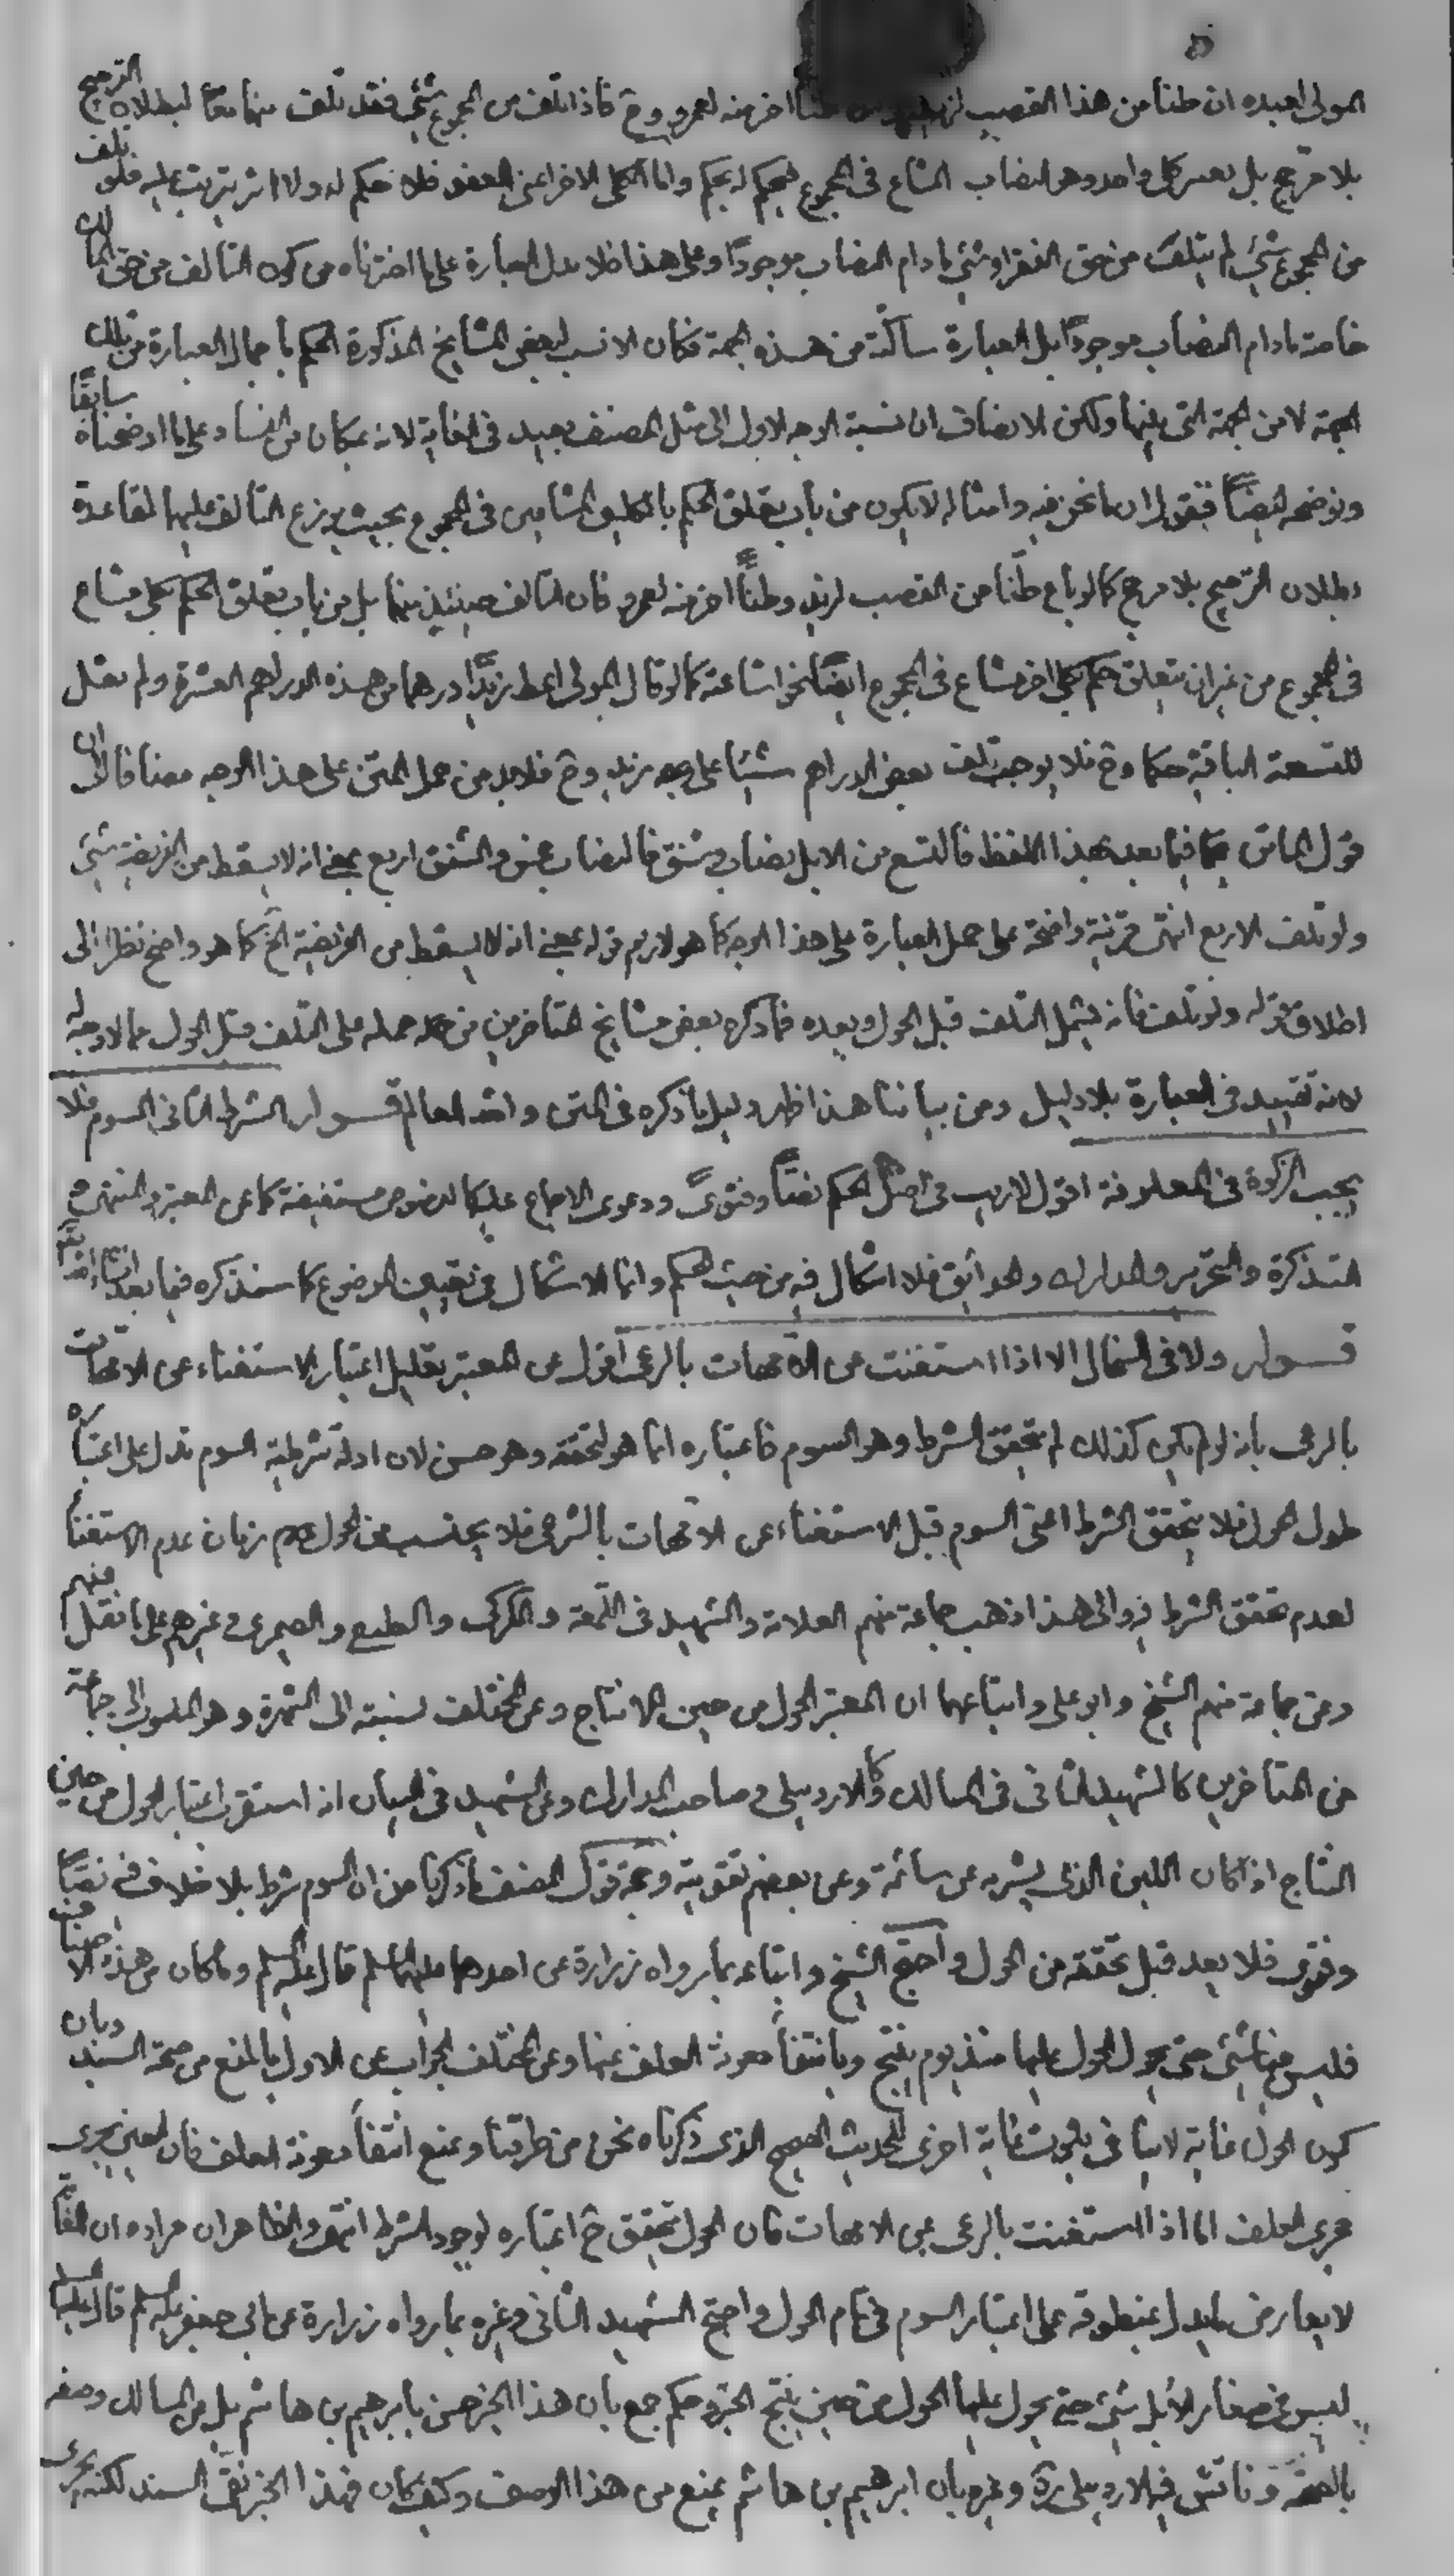 المولى لعبده ان طنا من هذا القصب لزيد طنا اخر منه لعمرو وح فاذا تلف من المجموع شئ فقد تلف منهما معا لبطلان الترجيح
بلا مرجح بل يعتبر كلى واحد وهو النصاب المشاع فى المجموع لحكم وانما الكلى الاخر اعنى العفو فلا حكم له ولا اثر يترتب عليه فلو تلف
من المجموع شئ لم يتلف من حق الفقراء شئ ما دام النصاب موجودا وعلى هذا فلا تدل العبارة على ما اخترناه من كون التالف من حق المالك
خاصة ما دام النصاب موجودا بل العبارة ساكتة من هذه الجهة فكان الانسب لبعض المشايخ المذكورة الحكم باجمال العبارة من تلك
الجهة لا من الجهة التى بينها ولكن الانصاف ان نسبة الوجه الاول الى مثل المصنف بعيد فى الغاية لانه بمكان من الفساد على ما اوضحناه سابقا
ونوضحه ايضا فنقول ان ما نحن فيه وامثاله لا يكون من باب تعلق الحكم بالكليين المشاعين فى المجموع بحيث يوزع التالف عليهما لقاعدة
بطلان الترجيح بلا مرجح كما لو باع طنا من القصب لزيد وطنا اخر منه لعمرو فان التالف حينئذ بينهما بل من باب تعلق الحكم بكلى مشاع
فى المجموع من غير ان يتعلق حكم بكلى اخر مشاع فى المجموع ايضا نحو اشاعته كما لو قال المولى اعط زيدا درهما من هذه الدراهم العشرة ولم يقل
للتسعة الباقية حكما وح فلا يوجب تلف بعض الدراهم شيئا على زيد وح فلا بد من حمل المتن على هذا الوجه مضافا الى ان
قول الماتن فيما بعد بهذا اللفظ فالتسع من الابل نصاب وشنق فالنصاب خمس والشنق اربع بمعنى انه لا يسقط من الفريضة شئ
ولو تلف الاربع انتهى قرينة واضحة على حمل العبارة على هذا الوجه كما هو لازم قوله بمعنى انه لا يسقط من الفريضة الخ كما هو واضح نظرا الى
اطلاق قوله ولو تلف فانه يشمل التلف قبل الحول وبعده فما ذكره بعض مشايخ المتاخرين من حمله على التلف قبل الحول مما لا وجه له
لانه تقييد فى العبارة بلا دليل ومن بياننا هذا ظهر دليل ما ذكره فى المتن والله العالم قوله الشرط الثانى السوم فلا
يجب الزكوة فى المعلوفة اقول لا ريب فى اصل الحكم نصا وفتوى ودعوى الاجماع عليه كالنصوص مستفيضة كما عن المعتبر والمنتهى و
التذكرة والتحرير والمدارك والحدائق فلا اشكال فيه من حيث الحكم وانما الاشكال فى تعيين الموضوع كما سنذكره فيما بعد انشاء الله تعالى
قوله ولا فى السخال الا اذا استغنت عن الامهات بالرعى اقول عن المعتبر تعليل اعتبار الاستغناء عن الامهات
بالرعى بانه لو لم يكن كذلك لم يتحقق الشرط وهو السوم فاعتباره انما هو لتحققه وهو حسن لان ادلة شرطية السوم تدل على اعتباره
طول الحول فلا يتحقق الشرط اعنى السوم قبل الاستغناء عن الامهات بالرعى فلا يحتسب من الحول زمان عدم الاستغناء
لعدم تحقق الشرط فيه والى هذا ذهب جماعة منهم العلامة والشهيد فى اللمعة والكركى والقطيفى والصيمرى وغيرهم على ما نقل عنهم
وعن جماعة منهم الشيخ وابو على واتباعهما ان المعتبر الحول من حين الانتاج وعن المختلف نسبته الى الشهرة وهو المنسوب الى جماعة
من المتاخرين كالشهيد الثانى فى المسالك والاردبيلى وصاحب المدارك وعن الشهيد فى البيان انه استقرب اعتبار الحول من حين
النتاج اذا كان اللبن الذى يشربه عن سائمة وعن بعضهم تقويته وحجة قول المصنف ما ذكرنا من ان السوم شرط بلا خلاف فيه نصا
وفتوى فلا يعد قبل تحققه من الحول واحتج الشيخ واتباعه بما رواه زرارة عن احدهما عليهما السلم قال عليه السلم وما كان من هذه الاصناف
فليس فيها شئ حتى يحول الحول عليها منذ يوم ينتج وبانتفاء مؤنة العلف عنها وعن المختلف الجواب عن الاول بالمنع من صحة السند وبان
كون الحول غاية لا ينافى ثبوت غاية اخرى للحديث الصحيح الذى ذكرناه نحن من طرقنا ونمنع انتفاء مؤنة العلف فان اللبن يجرى
مجرى العلف اما اذا استغنت بالرعى عن الامهات فان الحول يتحقق ح اعتباره لوجود الشرط انتهى والظاهر ان مراده ان
لا يعارض ما يدل بمنطوقه على اعتبار السوم فى تمام الحول واحتج الشهيد الثانى وغيره بما رواه زرارة عن ابى جعفر عليه السلم قال
ليس فى صغار الابل شئ حتى يحول عليها الحول من حين ينتج الخبر وحكم جمع بان هذا الخبر حسن بابراهيم بن هاشم بل عن المسالك وصفه
بالصحة وناقش فيه الاردبيلى ره وغيره بان ابراهيم بن هاشم يمنع من هذا الوصف وكيف كان فهذا الخبر نقى السند لكنه يجرى